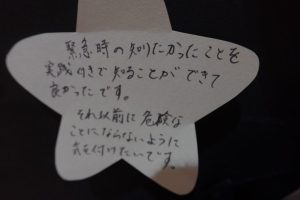 緊急時の知りたかったことを
実践付きで知ることができて
良かったです。
それ以前に危険な
ことにならないように
気を付けたいです。